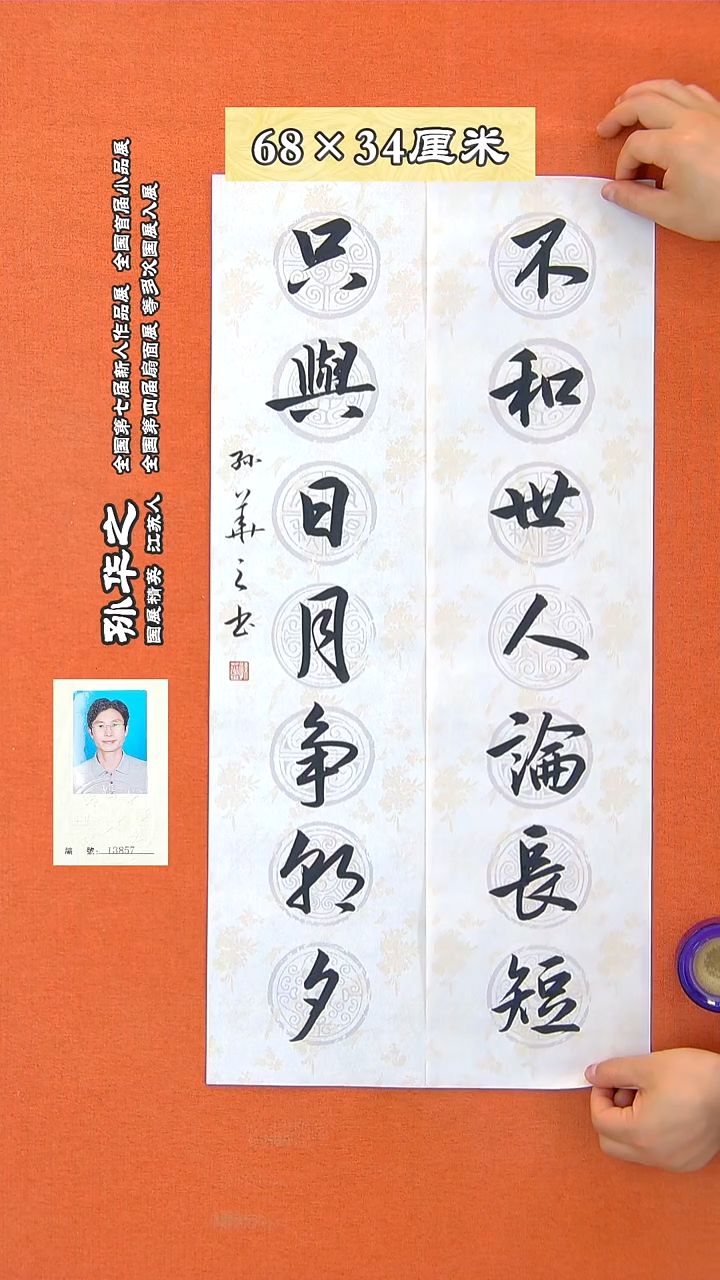 68×34厘米
不和世人論長短
只與日月争朝夕
孙华之书
孙华之
国展精英 江苏人
全国第七届新人作品展 全国首届小品展
全国第四届扇面展 等多次国展入展
編 號: 13857